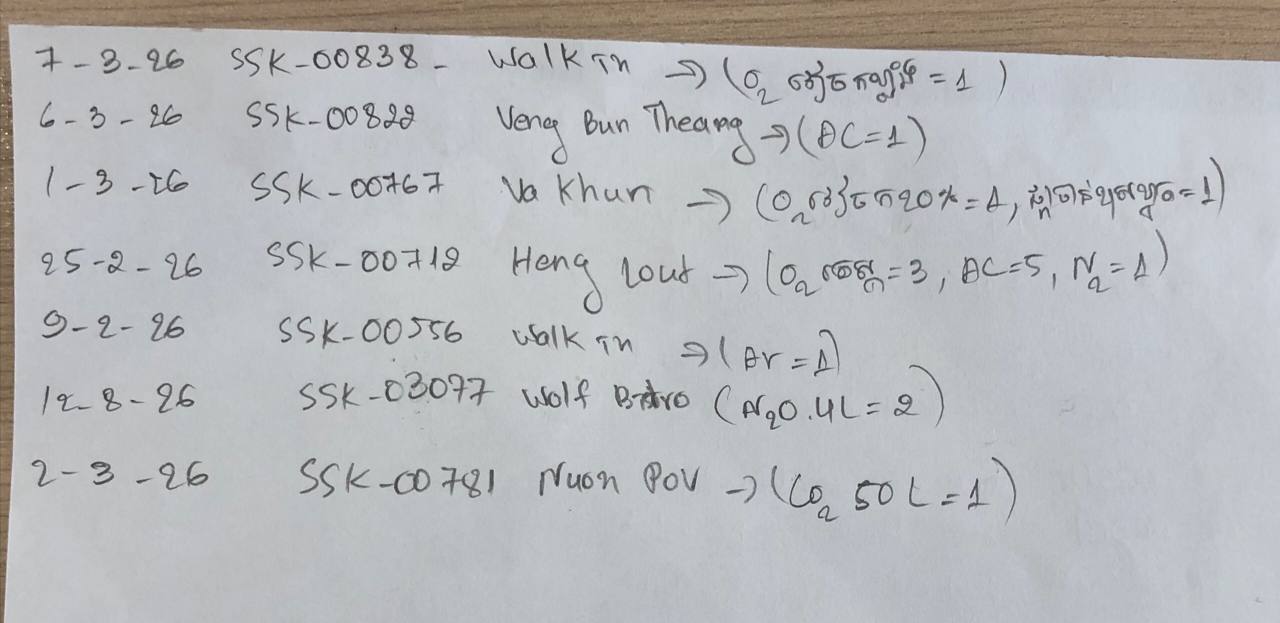 7-3-26 SSK-00838- Walk in → (O₂ = 1)
6-3-26 SSK-00822 Veng Bun Theang → (AC=1)
1-3-26 SSK-00767 Va Khun → (O₂ 20% = 1, = 1)
25-2-26 SSK-00712 Heng Lout → (O₂ = 3, AC=5, N₂=1)
9-2-26 SSK-00556 Walk in → (Ar = 1)
12-8-26 SSK-03077 Wolf (N₂O.4L = 2)
2-3-26 SSK-00781 Nuon Pov → (CO₂ 50L = 1)